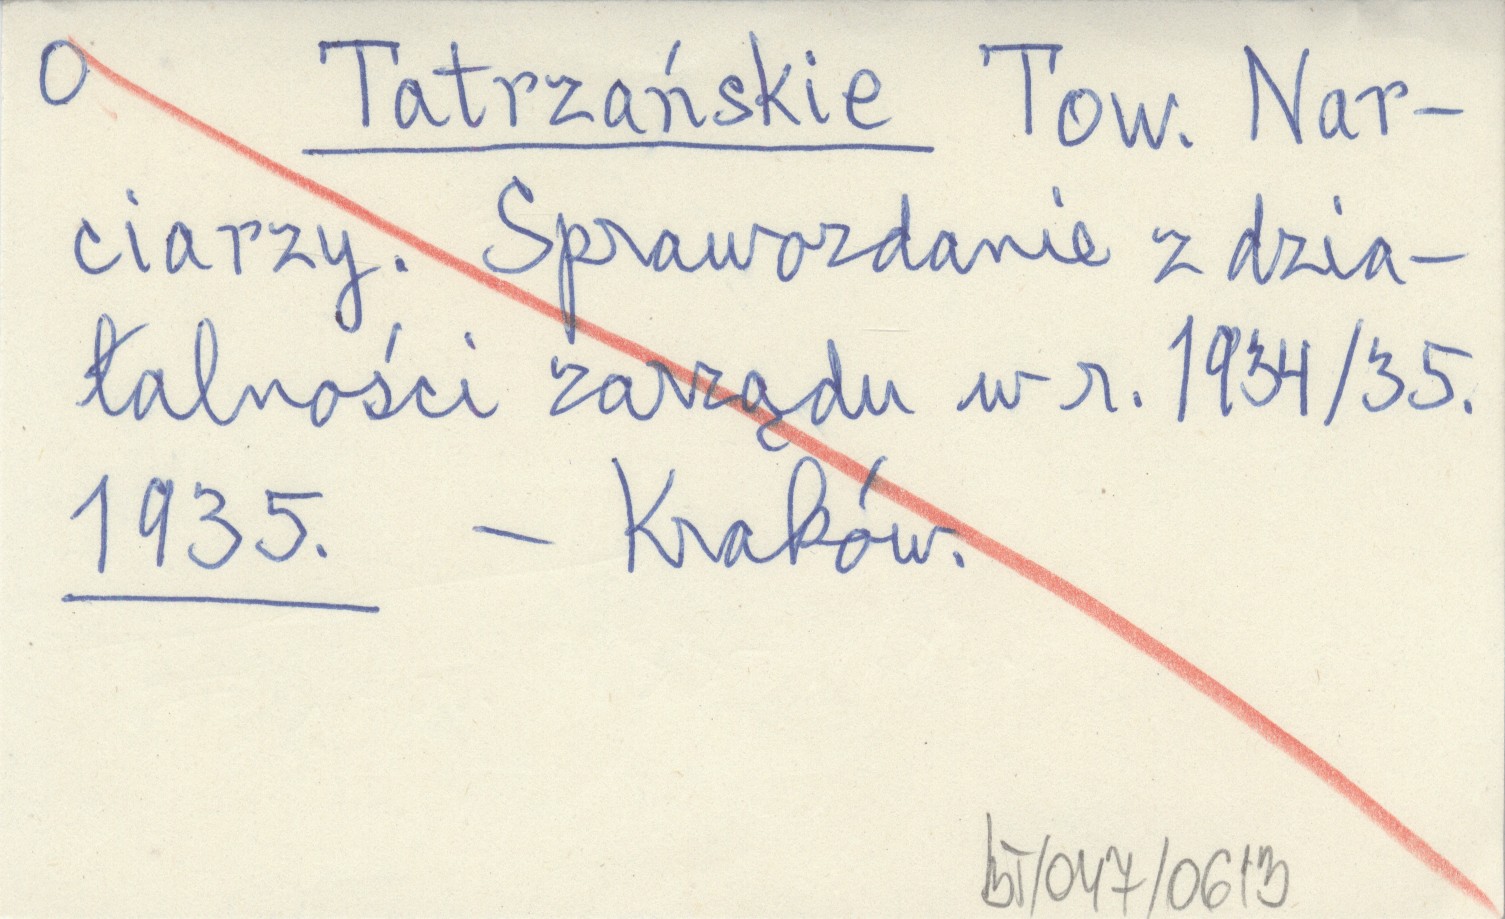 O Tatrzańskie Tow. Nar-
ciarzy. Sprawozdanie z dzia-
łalności zarządu w r. 1934/35.
1935. – Kraków.
bT/047/0613